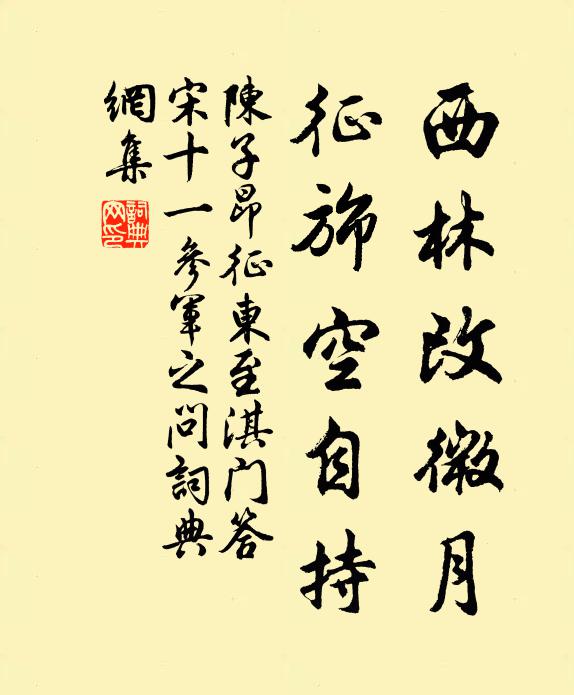 西林改微月
征旆空自持
陳子昂征東至淇门答
宋十一參軍之问詞典
網集
詞典
网印